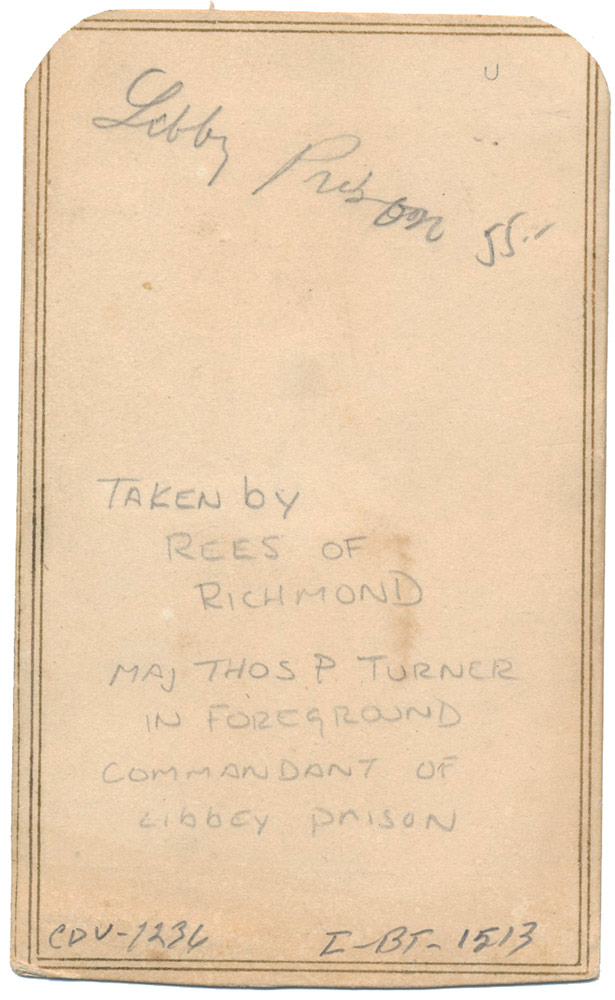 U
Libby Prison 55.–
TAKEN by
REES OF
RICHMOND
MAJ THOS P TURNER
IN FOREGROUND
COMMANDANT OF
Libbey PRISON
CDV-1236 I-BT-1513